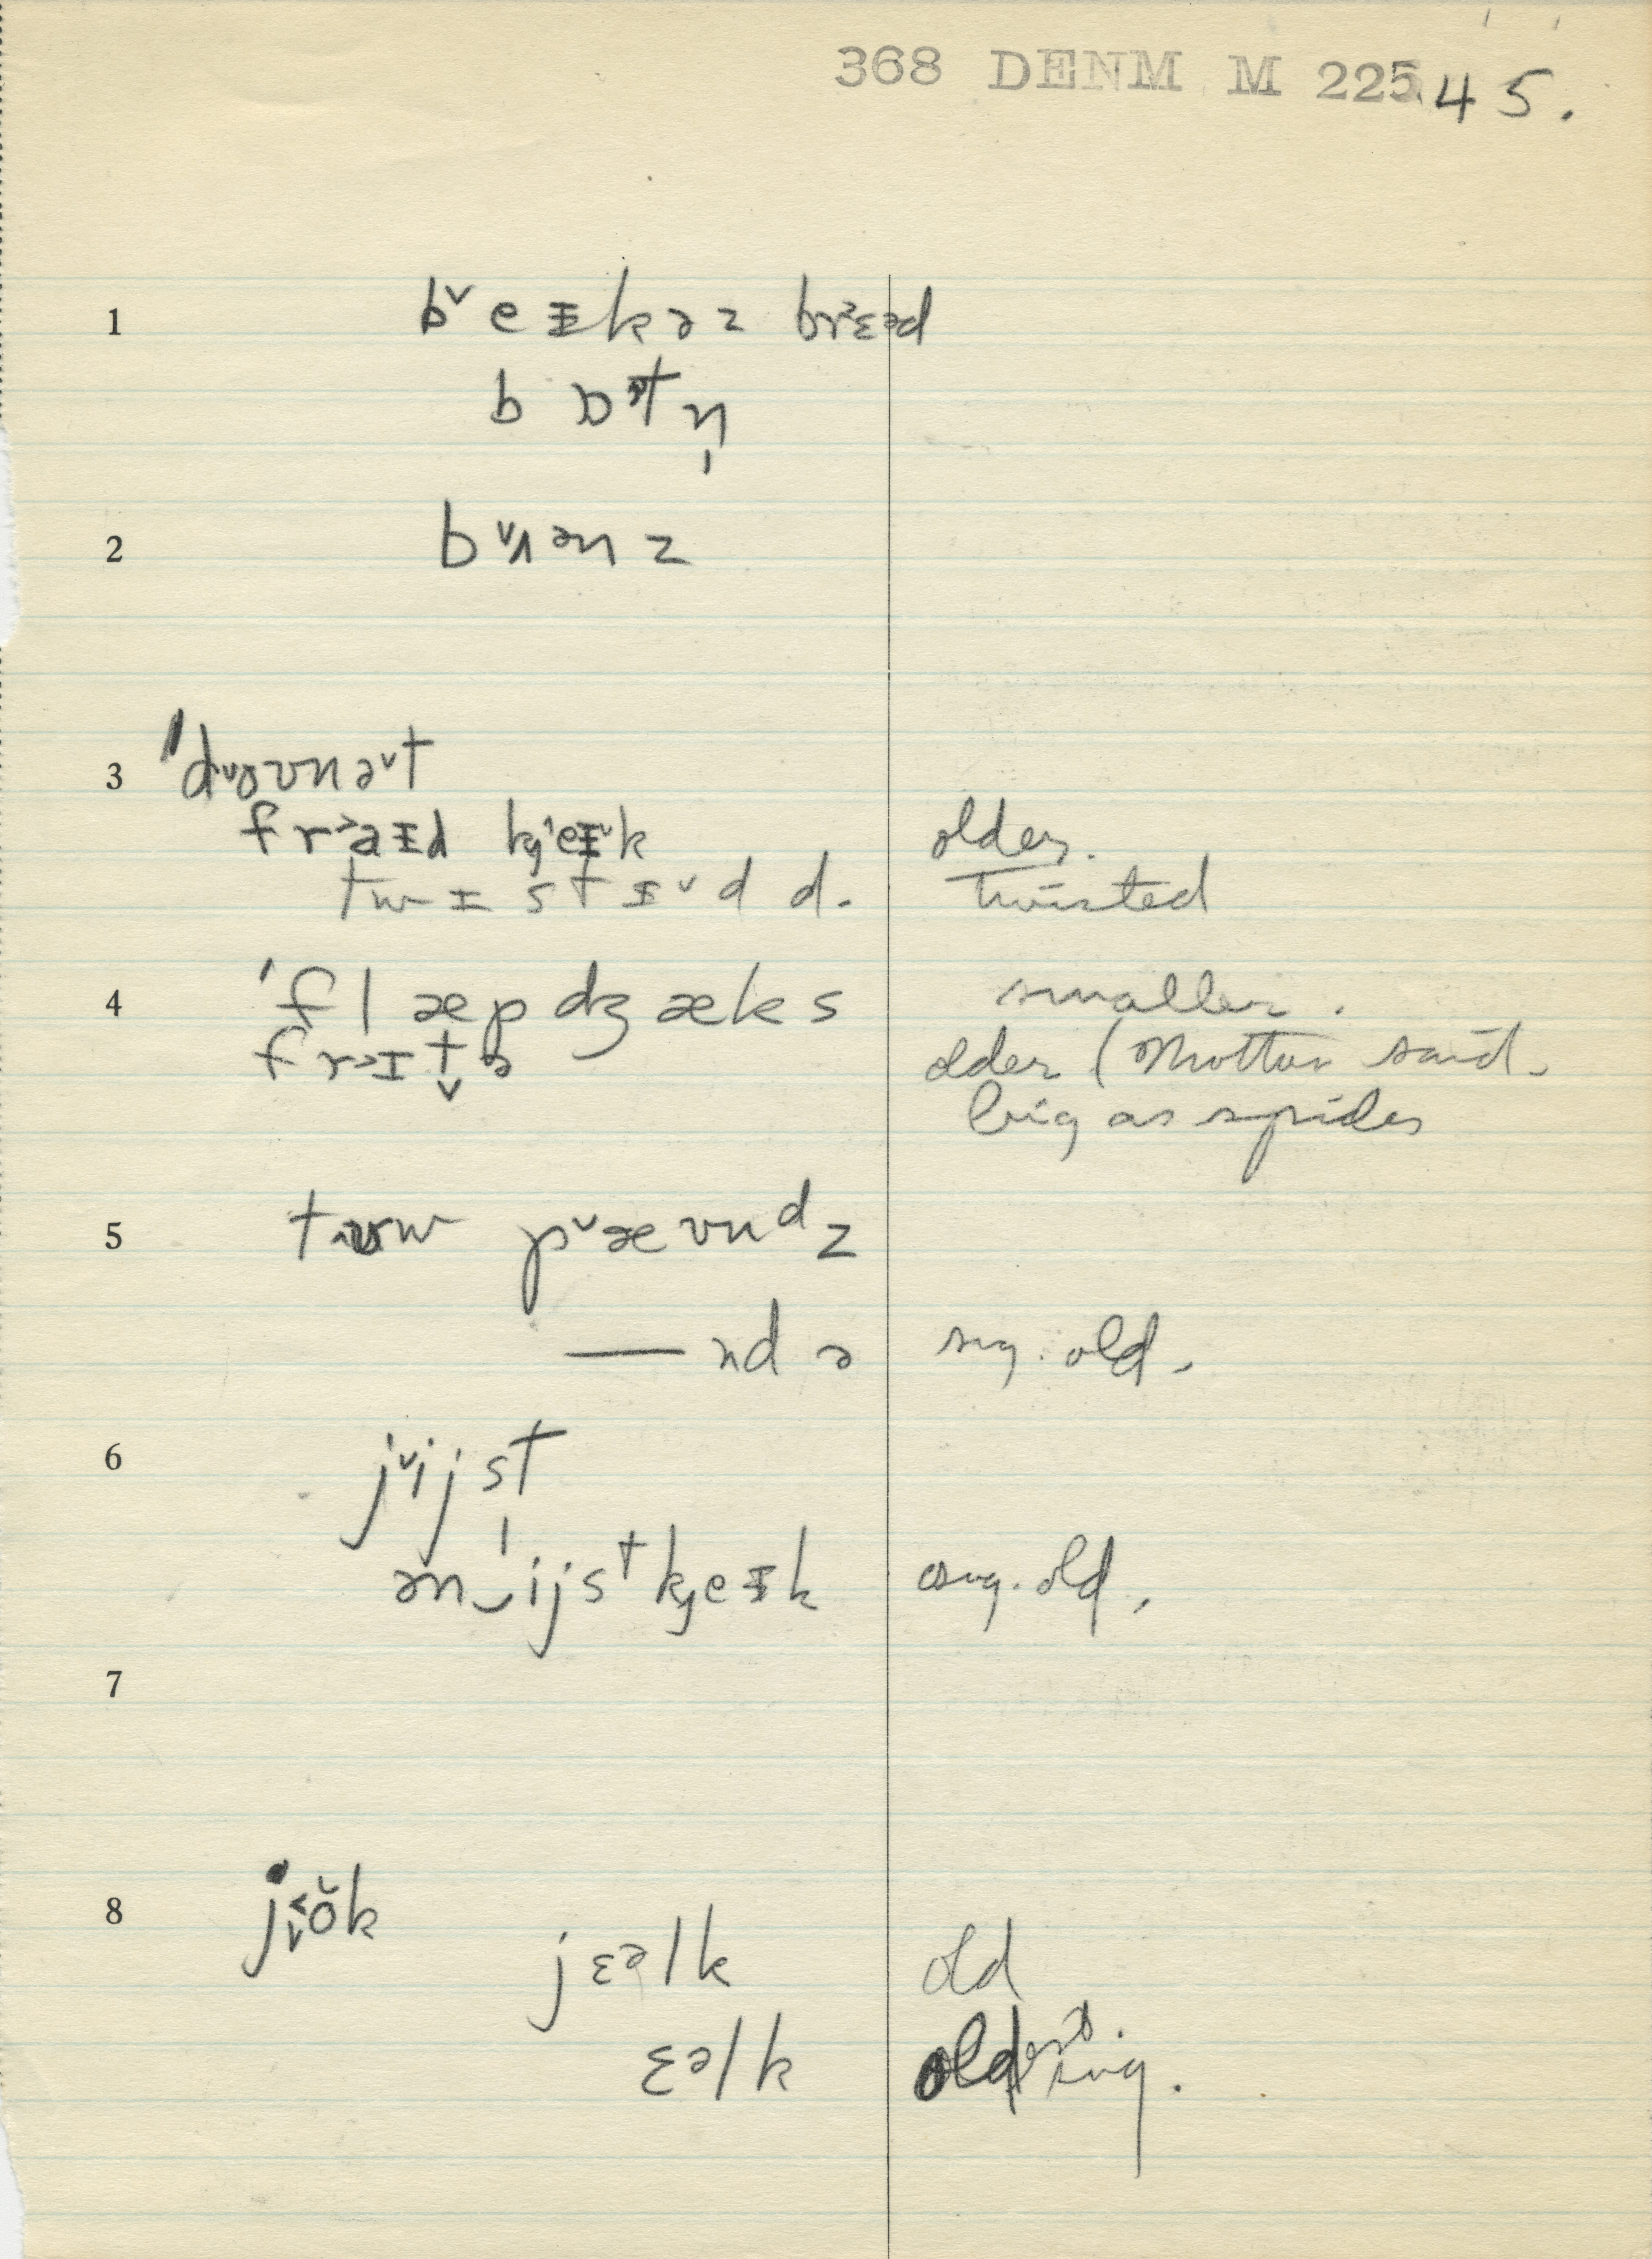 368 DENM M 225 45.
1 b˅eᵻkəz brɛəd
b ɒt n̩
2 b˅ʌənz
3 ˈd ʊnə˅t
fr˃aᵻd k̡eᵻ˅k older.
twɪstᵻ˅d d. twisted
4 ˈflæpdʒæks smaller.
fr˃ɪt̬ə older (Mother said.
big as spider
5 p˅æʊndz
— ndə sug. old.
6 j˅ijst
ən‿ˈijst k̡eᵻk sug. old.
7
8 jŏk
jɛəlk old
ɛəlk oldest sug.